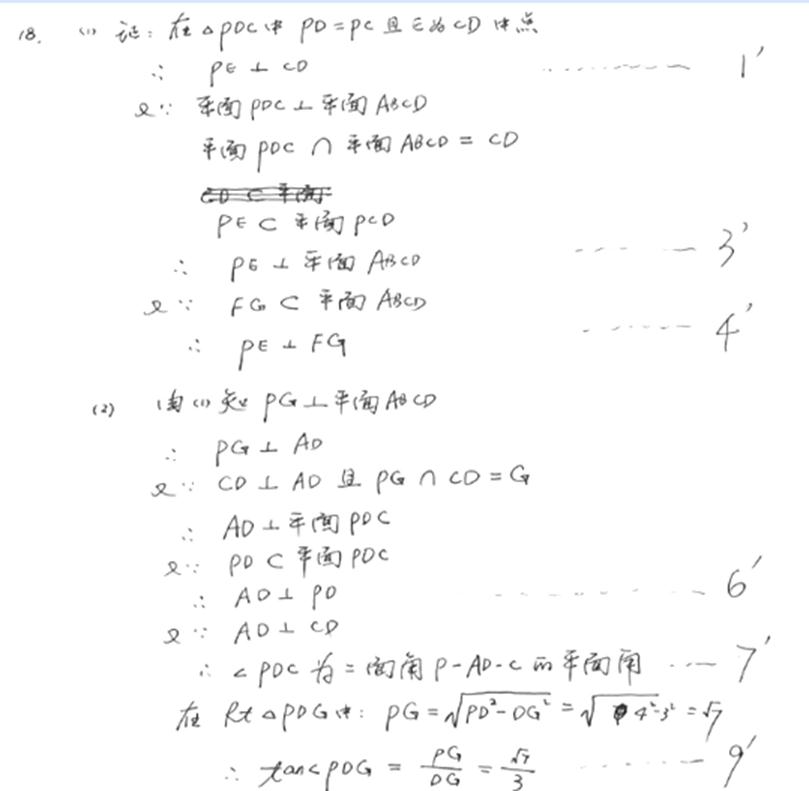 18. (1) 证: 在△PDC中 PD=PC且E为CD中点
∴ PE⊥CD ............ 1′
又∵ 平面PDC⊥平面ABCD
平面PDC∩平面ABCD=CD
CD⊂平面
PE⊂平面PCD
∴ PE⊥平面ABCD ............ 3′
又∵ FG⊂平面ABCD
∴ PE⊥FG ............ 4′
(2) 由(1)知 PG⊥平面ABCD
∴ PG⊥AD
又∵ CD⊥AD且PG∩CD=G
∴ AD⊥平面PDC
又∵ PD⊂平面PDC
∴ AD⊥PD ............ 6′
又∵ AD⊥CD
∴ ∠PDC为二面角P-AD-C的平面角 ...... 7′
在Rt△PDG中: PG=√(PD²-DG²)=√(4²-3²)=√7
∴ tan∠PDG = PG/DG = √7/3 ............ 9′